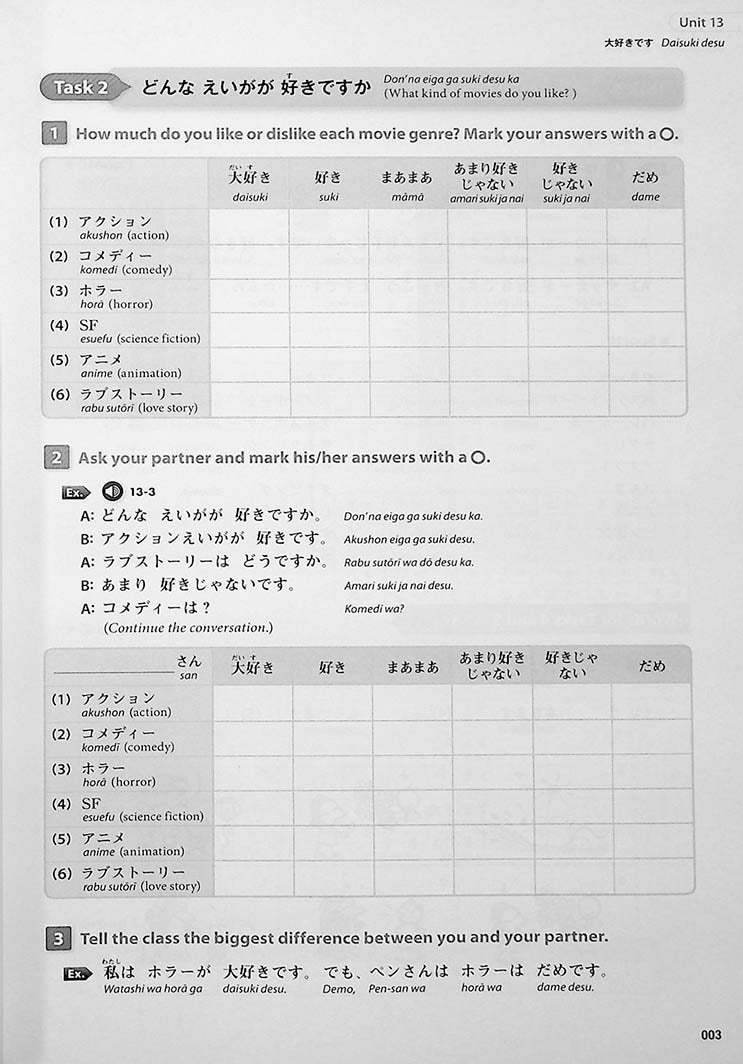 Unit 13
大好きです Daisuki desu
Task 2 どんな えいがが 好きですか Don'na eiga ga suki desu ka
す
(What kind of movies do you like? )
1 How much do you like or dislike each movie genre? Mark your answers with a O.
だい す
大好き 好き まあまあ あまり好きじゃない 好きじゃない だめ
daisuki suki māmā amari suki ja nai suki ja nai dame
(1) アクション
akushon (action)
(2) コメディー
komedī (comedy)
(3) ホラー
horā (horror)
(4) SF
esuefu (science fiction)
(5) アニメ
anime (animation)
(6) ラブストーリー
rabu sutōrī (love story)
2 Ask your partner and mark his/her answers with a O.
Ex. 13-3
A: どんな えいがが 好きですか。 Don'na eiga ga suki desu ka.
B: アクションえいがが 好きです。 Akushon eiga ga suki desu.
A: ラブストーリーは どうですか。 Rabu sutōrī wa dō desu ka.
B: あまり 好きじゃないです。 Amari suki ja nai desu.
A: コメディーは? Komedī wa?
(Continue the conversation.)
だい す
さん 大好き 好き まあまあ あまり好きじゃない 好きじゃない だめ
san
(1) アクション
akushon (action)
(2) コメディー
komedī (comedy)
(3) ホラー
horā (horror)
(4) SF
esuefu (science fiction)
(5) アニメ
anime (animation)
(6) ラブストーリー
rabu sutōrī (love story)
3 Tell the class the biggest difference between you and your partner.
わたし
Ex. 私は ホラーが 大好きです。 でも、ペンさんは ホラーは だめです。
Watashi wa horā ga daisuki desu. Demo, Pen-san wa horā wa dame desu.
003